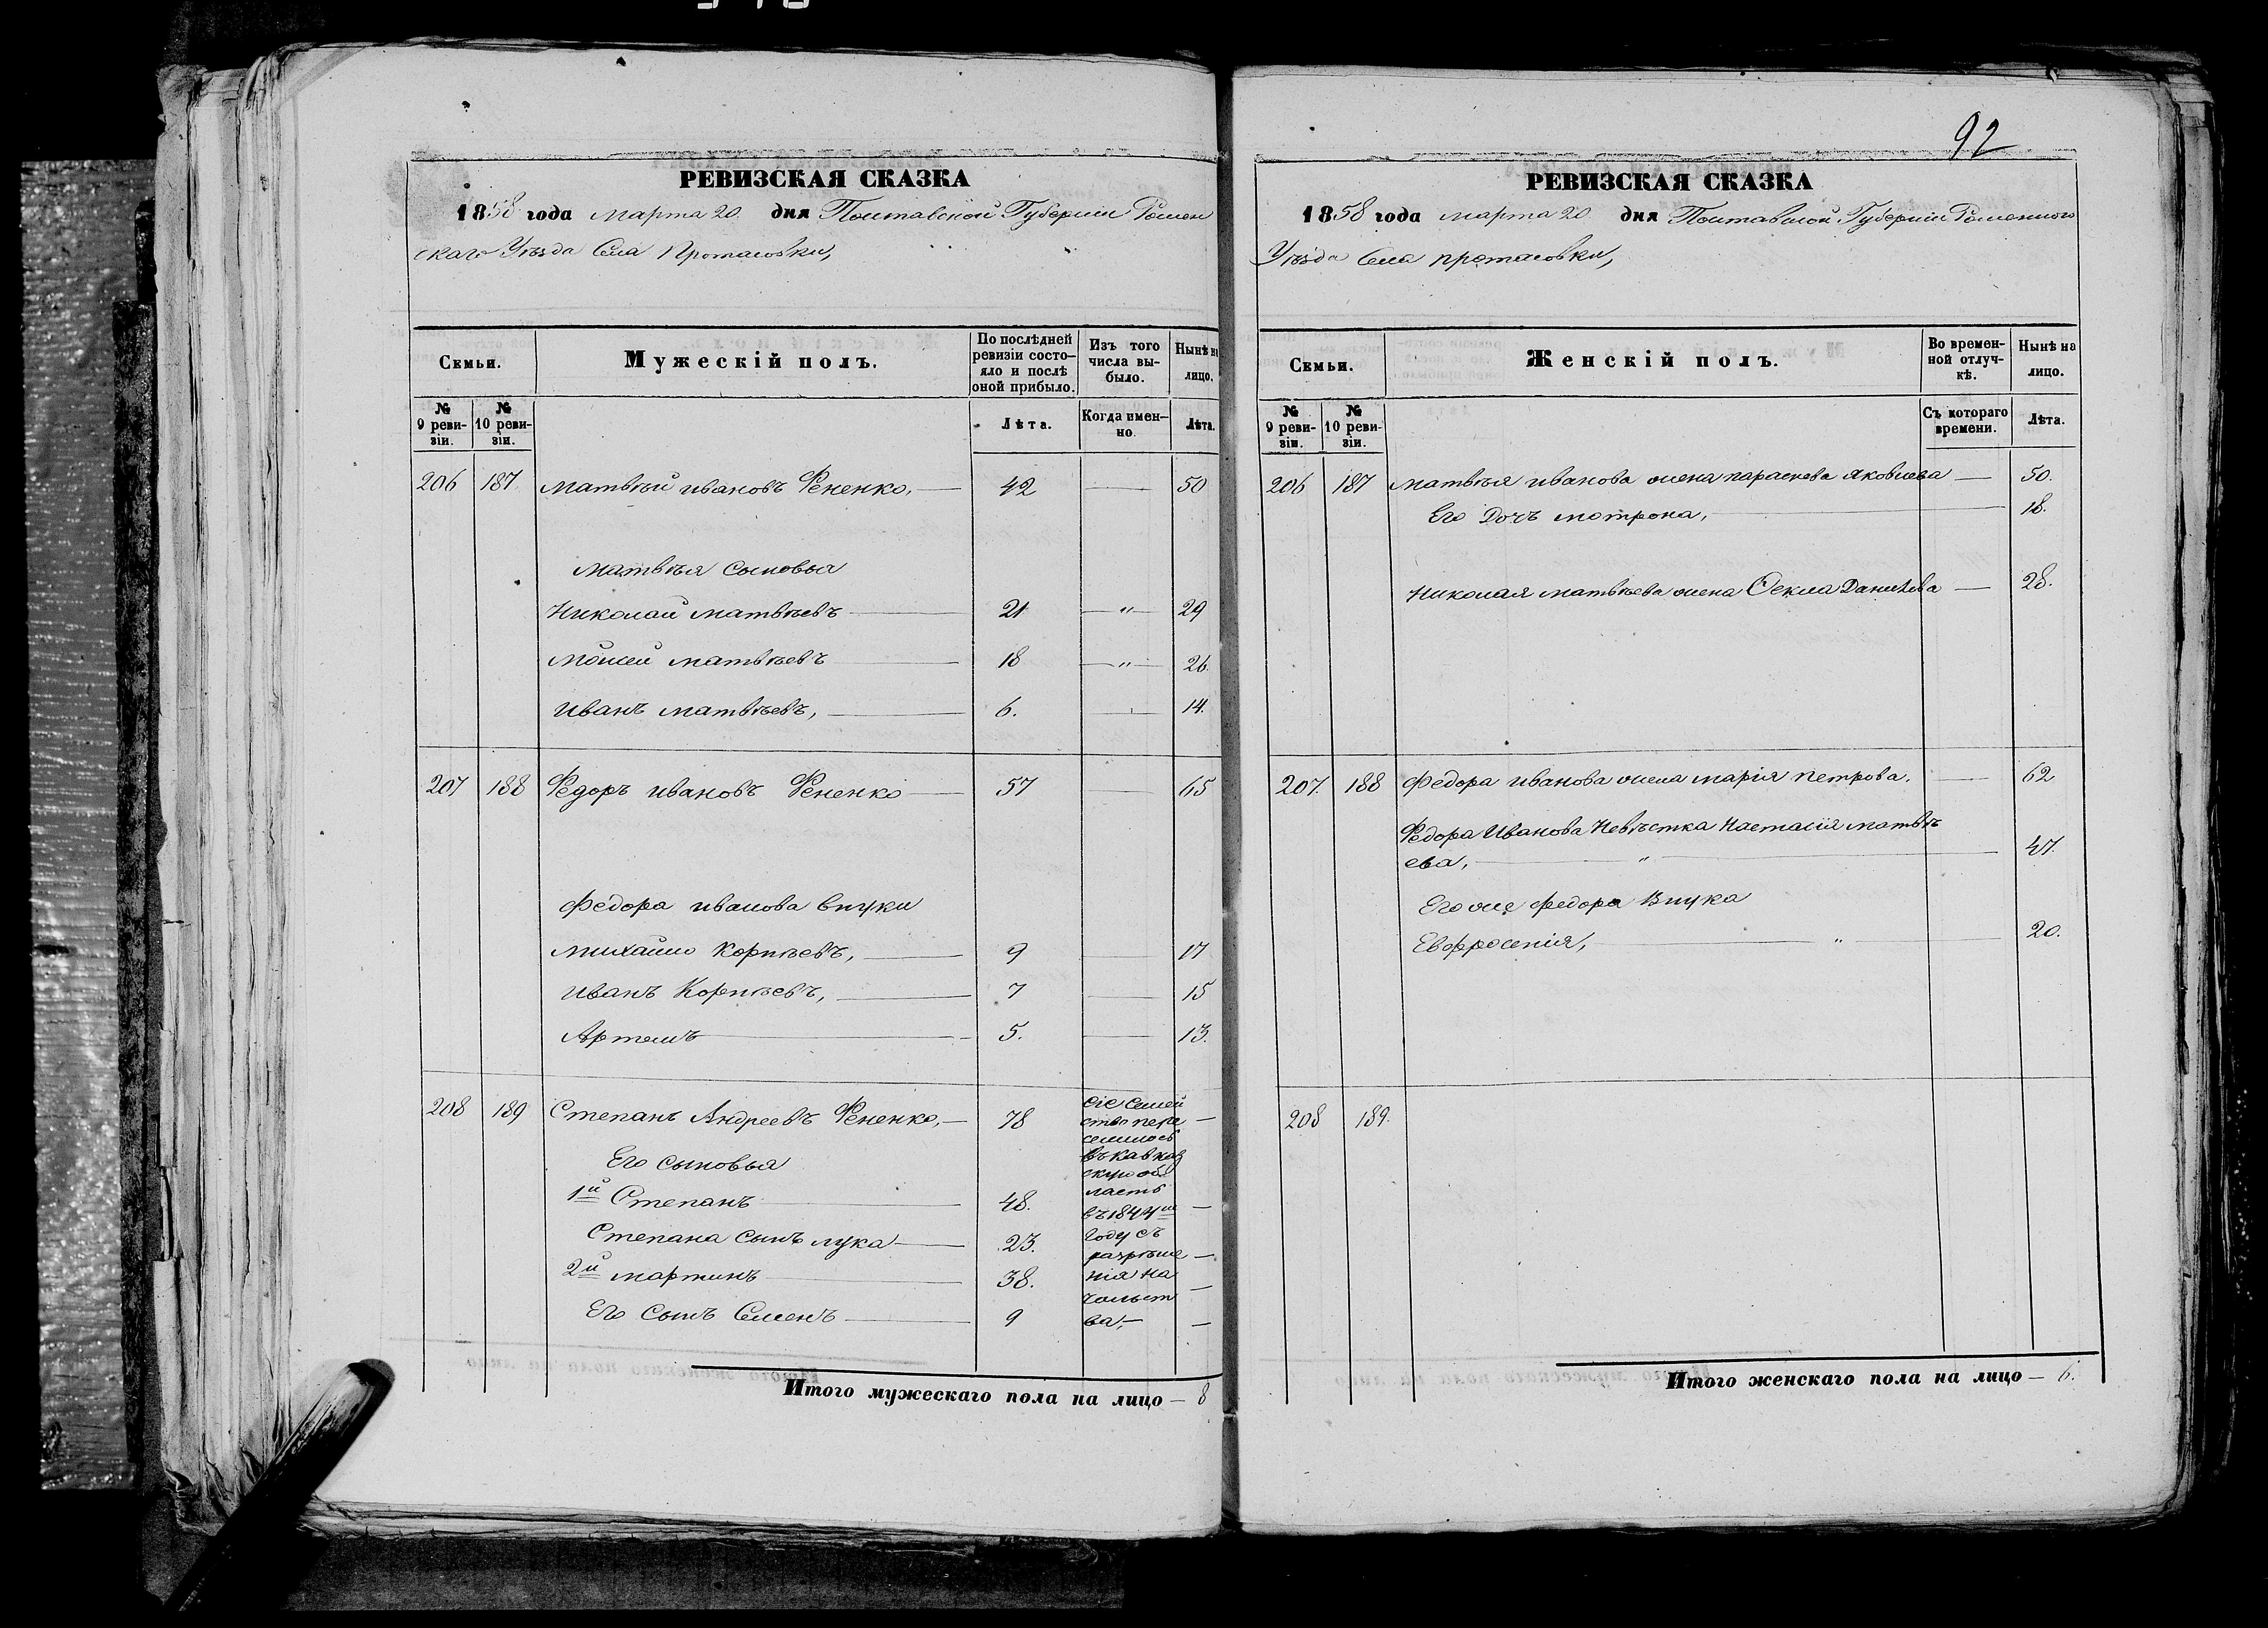 92
РЕВИЗСКАЯ СКАЗКА
1858 года марта 20 дня Полтавской Губерніи Ромен
скаго Уѣзда Села Протасовки,
Семьи.
Мужескій полъ.
По послѣдней ревизіи состояло и послѣ оной прибыло.
Изъ того числа выбыло.
Нынѣ на лицо.
№ 9 ревизіи.
№ 10 ревизіи.
Лѣта.
Когда именно.
Лѣта.
206 187 Матвѣй ивановъ Фененко, — 42 — 50
Матвѣя Сыновья
Николай матвѣевъ 21 — " — 29
Мойсей матвѣевъ 18 — " — 26.
Иванъ матвѣевъ, 6. — 14.
207 188 Федоръ ивановъ Фененко 57 — 65
Федора иванова внуки
Михайло Корнѣевъ, 9 — 17
Иванъ Корнѣевъ, 7 — 15
Артемъ 5. — 13.
208 189 Степанъ Андреевъ Фененко, — 78 —
Его сыновья
1й Степанъ 48. —
Степана сынъ лука 23. —
2й мартинъ 38. —
Его сынъ Семенъ 9 —
сіе семей
ство пере
селилось
въ кавказ
скую об
ласть
въ 1844м
году съ
разрѣше
нія на
чальст
ва, —
Итого мужескаго пола на лицо — 8
РЕВИЗСКАЯ СКАЗКА
1858 года марта 20 дня Полтавской Губерніи Роменного
Уѣзда Села протасовки,
Семьи.
Женскій полъ.
Во временной отлучкѣ.
Нынѣ на лицо.
№ 9 ревизіи.
№ 10 ревизіи.
Съ котораго времени.
Лѣта.
206 187 Матвѣя иванова жена параскева яковлева — 50.
Его Дочъ мотрона, 18.
Николая матвѣева жена Ѳекла Данилева — 28.
207. 188 Федора иванова жена марія петрова. — 62
Федора Иванова Невѣстка Настасія матвѣ
ева, " 47.
Его же федора Внука
Евфросенія, " 20.
208 189.
Итого женскаго пола на лицо — 6.